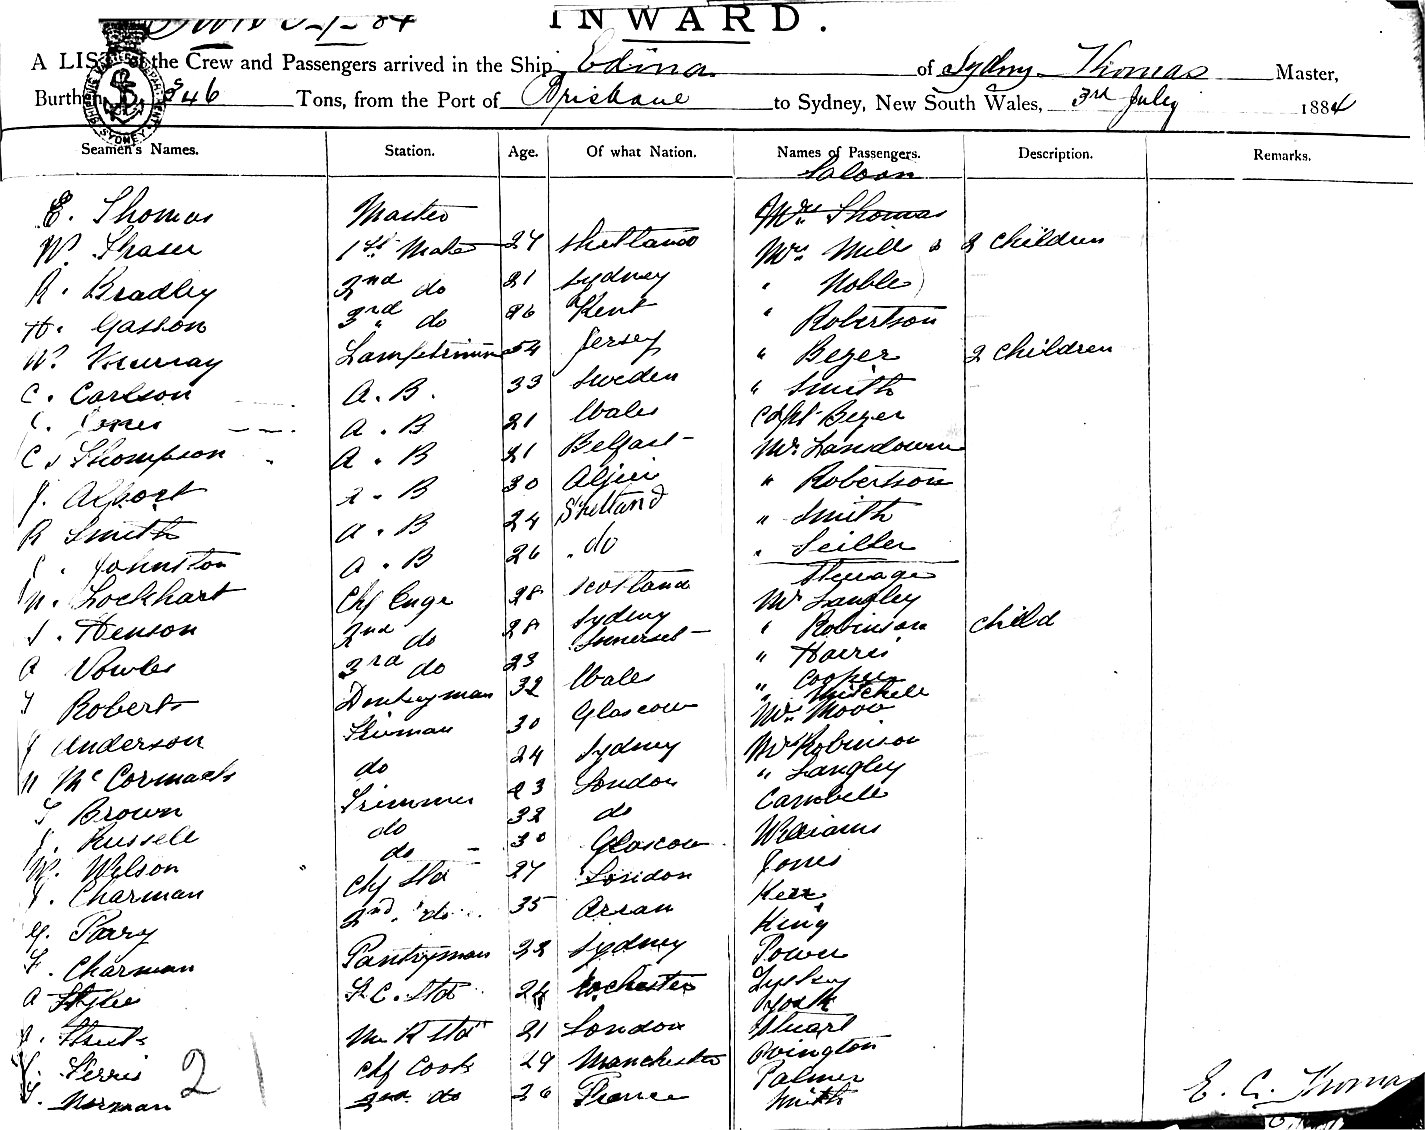 INWARD.
A LIST of the Crew and Passengers arrived in the Ship Edina of Sydney Thomas Master,
Burthen 346 Tons, from the Port of Brisbane to Sydney, New South Wales, 3rd July 1884
Seamen's Names. Station. Age. Of what Nation. Names of Passengers. Description. Remarks.
Saloon
E. Thomas Master Mrs Thomas
W. Fraser 1st Mate 27 Shetland Mrs Mill & 2 children
R. Bradley 2nd do 21 Sydney " Noble
H. Gasson 3rd " do 26 Kent " Robertson
W. Murray Lamptrimmer 54 Jersey " Beyer 2 children
C. Carlson A. B. 33 Sweden " Smith
Jones A. B 21 Wales Capt Beyer
C. Thompson A. B 21 Belfast Mr Lansdown
J. Alport A. B 30 " Robertson
R Smith A. B 24 Shetland " Smith
Johnston A. B 26 do " Seiller
Steerage
Lockhart Chf Enge 28 Scotland Mr Langley
Henson 2nd do 28 Sydney " Robinson child
A Vowles 3rd do 23 Somerset " Harris
T Roberts Donkeyman 32 Wales " Cooper
" Mitchell
J Anderson Fireman 30 Glascow Mrs Moov
N McCormack do 24 Sydney Mrs Robinson
T Brown Trimmer 23 London " Langley
J. Russell do 32 do Cambell
W. Wilson do 30 Glascow Williams
J. Charman Chf Std 27 London Jones
G. Parry 2nd. do 35 Arran Kerr
F. Charman Pantryman 22 Sydney King
A F. C. Std 24 Rochester Power
M R Std 21 London
Ferris Chf Cook 29 Manchester Stuart
T. Norman 2nd do 26 France Ovington
Palmer
Smith
2
E. C. Thomas